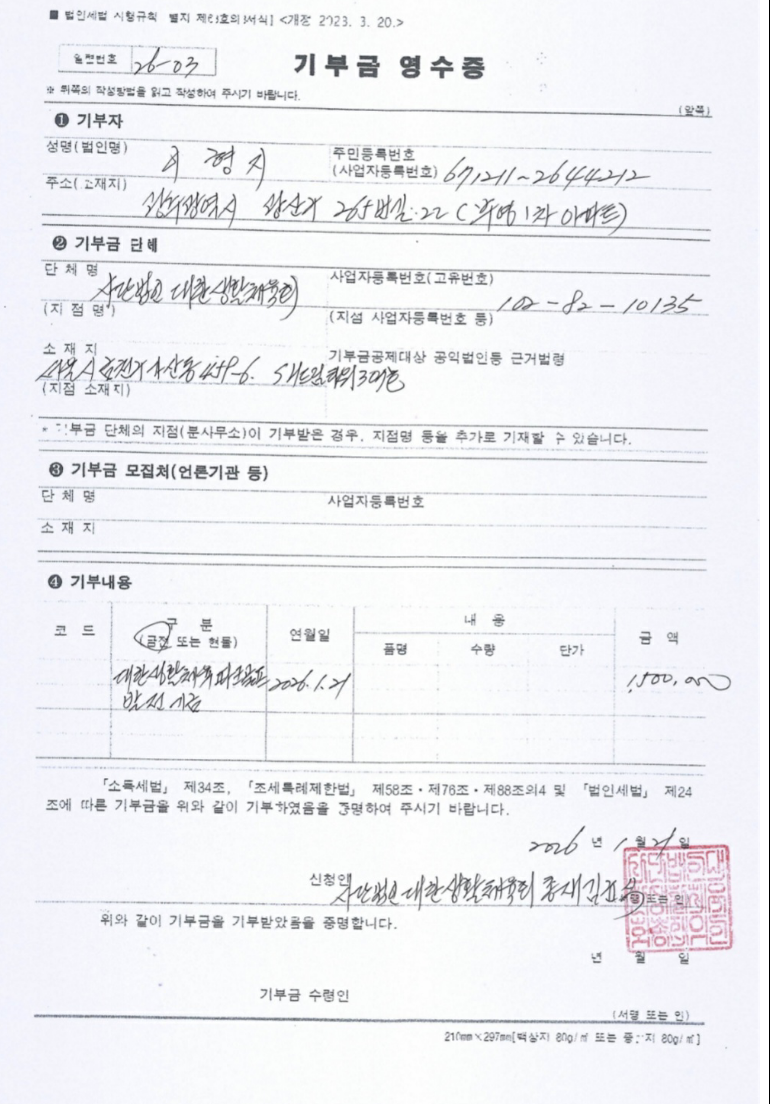 ■ 법인세법 시행규칙 별지 서식] <개정 2023. 3. 20.>
일련번호 26-03
기부금 영수증
※ 뒤쪽의 작성방법을 읽고 작성하여 주시기 바랍니다.
(앞쪽)
❶ 기부자
성명(법인명) 형지
주민등록번호
(사업자등록번호) 671211-2644212
주소(소재지)
광주광역시 광산구 265번길 22 ( 1차 아파트)
❷ 기부금 단체
단 체 명 사단법인 대한생활체육회
(지 점 명)
사업자등록번호(고유번호)
102-82-10135
(지점 사업자등록번호 등)
소 재 지
서울시 459-6. 타워
(지점 소재지)
기부금공제대상 공익법인등 근거법령
* 기부금 단체의 지점(분사무소)이 기부받은 경우, 지점명 등을 추가로 기재할 수 있습니다.
❸ 기부금 모집처(언론기관 등)
단 체 명
사업자등록번호
소 재 지
❹ 기부내용
코 드
구 분
(금전 또는 현물)
연월일
내 용
품명
수량
단가
금 액
대한생활체육파크골프
발전기금
2026.1.21
1,500,000
「소득세법」 제34조, 「조세특례제한법」 제58조ㆍ제76조ㆍ제88조의4 및 「법인세법」 제24
조에 따른 기부금을 위와 같이 기부하였음을 증명하여 주시기 바랍니다.
2026 년 1 월 21 일
신청인 사단법인 대한생활체육회 총재 김 또는 인)
위와 같이 기부금을 기부받았음을 증명합니다.
년 월 일
기부금 수령인
(서명 또는 인)
210mm×297mm[백상지 80g/㎡ 또는 중질지 80g/㎡]